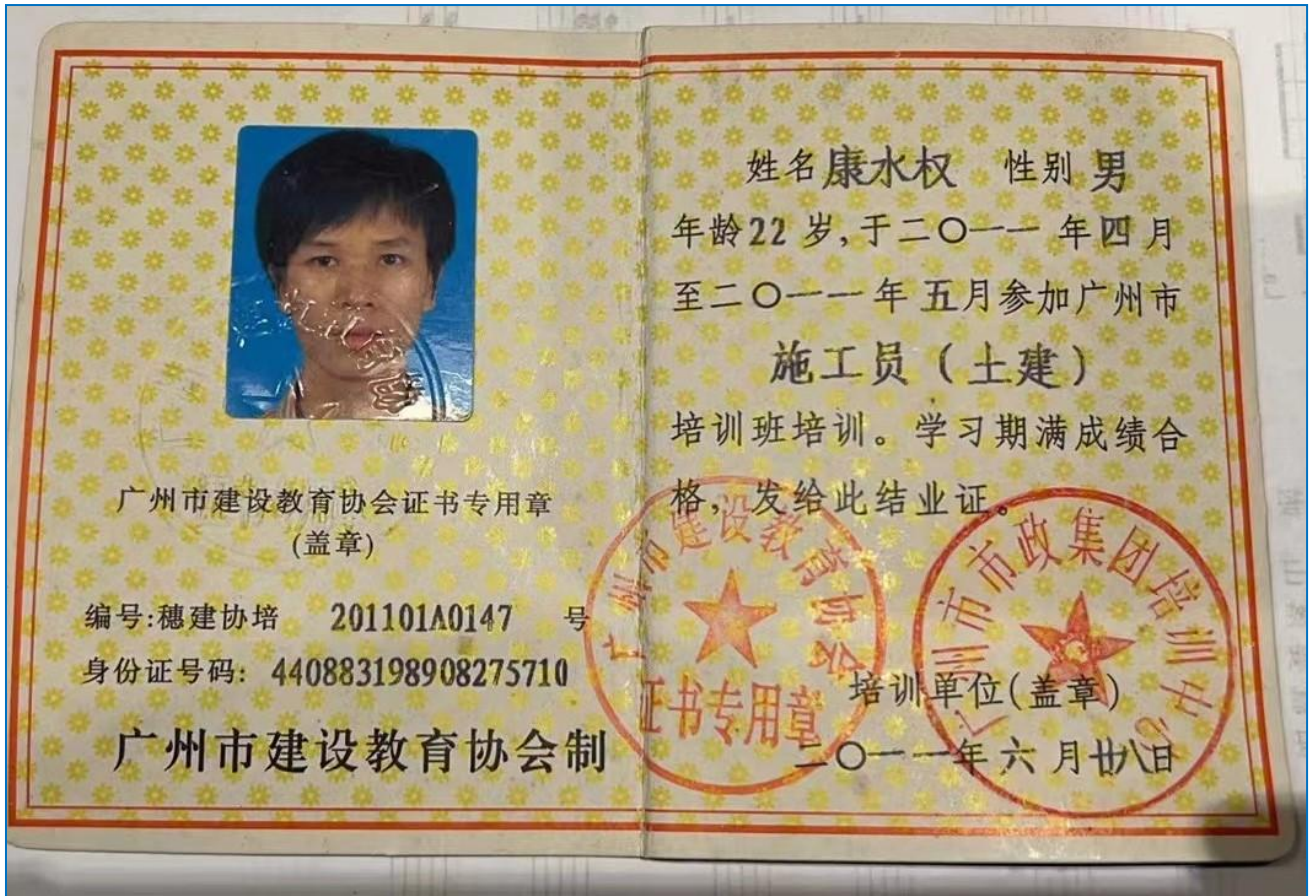 广州市建设教育协会证书专用章
(盖章)
编号:穗建协培 201101A0147 号
身份证号码: 440883198908275710
广州市建设教育协会制
姓名康水权 性别 男
年龄22 岁,于二〇一一 年四 月
至二〇一一 年 五月参加广州市
施工员（土建）
培训班培训。学习期满成绩合
格,发给此结业证。
广州市建设教育协会
证书专用章
广州市市政集团培训中心
培训单位(盖章)
二〇一一年六 月廿八日